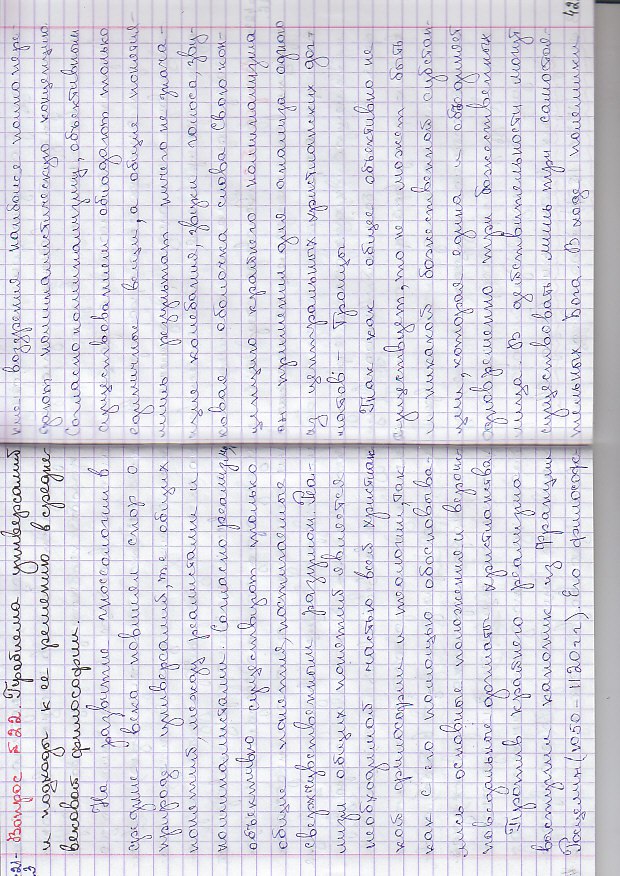 Вопрос №22. Проблема универсалий
и подходы к ее решению в средне-
вековой философии.
На развитие гносеологии в
средние века повлиял спор о
природе универсалий, т.е. общих
понятий, между реалистами и
номиналистами. Согласно реализму,
объективно существуют только
общие понятия, постигаемые
сверхчувственным разумом. Реа-
лизм общих понятий является
необходимой частью всей христиан-
кой философии и теологии, так
как с его помощью обосновыва-
лись основные положения и верои-
поведальные догматы христианства.
Против крайнего реализма
выступил каноник из Франции
Росцелин (1050-1120 гг). Его философс-
кие воззрения наиболее полно пере-
дают номиналистическую концепцию.
Согласно номинализму, объективным
существованием обладают только
единичные вещи, а общие понятия -
лишь результат ничего не знача-
щие колебания, звуки голоса, зву-
ковая оболочка слова. Свою кон-
цепцию крайнего номинализма
он применил для анализа одного
из центральных христианских дог-
матов - Троицы.
Так как общее объективно не
существует, то не может быть
и никакой божественной субстан-
ции, которая едина и объединяет
одновременно три божественных
лица. В действительности могут
существовать лишь три самостоя-
тельных Бога. В ходе полемики
42